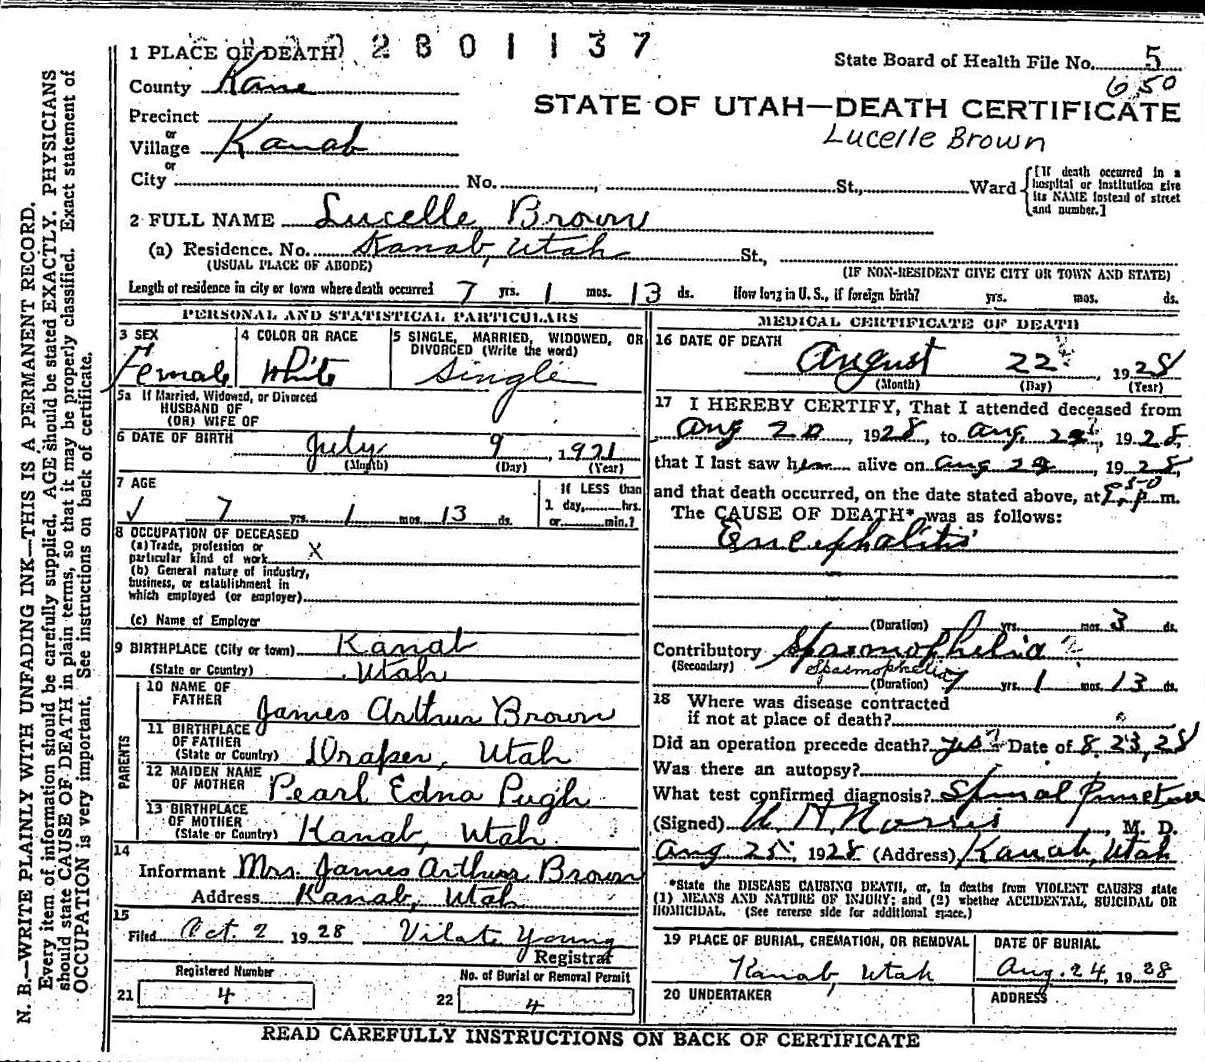 N. B.—WRITE PLAINLY WITH UNFADING INK—THIS IS A PERMANENT RECORD.
Every item of information should be carefully supplied. AGE should be stated EXACTLY. PHYSICIANS
should state CAUSE OF DEATH in plain terms, so that it may be properly classified. Exact statement of
OCCUPATION is very important. See instructions on back of certificate.
1 PLACE OF DEATH
2801137
State Board of Health File No. 5
650
County Kane
STATE OF UTAH—DEATH CERTIFICATE
Lucelle Brown
Precinct
or
Village Kanab
or
City No. St., Ward
[If death occurred in a
hospital or institution give
its NAME instead of street
and number.]
2 FULL NAME Lucelle Brown
(a) Residence. No. Kanab, Utah St.,
(USUAL PLACE OF ABODE) (IF NON-RESIDENT GIVE CITY OR TOWN AND STATE)
Length of residence in city or town where death occurred 7 yrs. 1 mos. 13 ds. How long in U. S., if foreign birth? yrs. mos. ds.
PERSONAL AND STATISTICAL PARTICULARS
3 SEX
Female
4 COLOR OR RACE
White
5 SINGLE, MARRIED, WIDOWED, OR
DIVORCED (Write the word)
Single
5a If Married, Widowed, or Divorced
HUSBAND OF
(OR) WIFE OF
6 DATE OF BIRTH July 9, 1921
(Month) (Day) (Year)
7 AGE
7 yrs. 1 mos. 13 ds.
If LESS than
1 day, hrs.
or min.?
8 OCCUPATION OF DECEASED
(a) Trade, profession or
particular kind of work X
(b) General nature of industry,
business, or establishment in
which employed (or employer)
(c) Name of Employer
9 BIRTHPLACE (City or town) Kanab
(State or Country) Utah
PARENTS
10 NAME OF
FATHER James Arthur Brown
11 BIRTHPLACE
OF FATHER
(State or Country) Draper, Utah
12 MAIDEN NAME
OF MOTHER Pearl Edna Pugh
13 BIRTHPLACE
OF MOTHER
(State or Country) Kanab, Utah
14
Informant Mrs. James Arthur Brown
Address Kanab, Utah
15
Filed Oct. 2 1928 Vilate Young
Registrar
Registered Number
21 4
No. of Burial or Removal Permit
22 4
MEDICAL CERTIFICATE OF DEATH
16 DATE OF DEATH
August 22 1928
(Month) (Day) (Year)
17 I HEREBY CERTIFY, That I attended deceased from
Aug 20, 1928, to Aug. 22, 1928
that I last saw h alive on Aug 1928,
and that death occurred, on the date stated above, at P. m.
The CAUSE OF DEATH* was as follows:
Encephalitis
(Duration) yrs. mos. 3 ds.
Contributory Spasmophelia ?
(Secondary) Spasmophelia
(Duration) 7 yrs. 1 mos. 13 ds.
18 Where was disease contracted
if not at place of death?
Did an operation precede death? yes? Date of 8, 23, 28
Was there an autopsy?
What test confirmed diagnosis? Spinal Puncture
(Signed) Norris, M. D.
Aug 25, 1928 (Address) Kanab, Utah
*State the DISEASE CAUSING DEATH, or, in deaths from VIOLENT CAUSES state
(1) MEANS AND NATURE OF INJURY; and (2) whether ACCIDENTAL, SUICIDAL OR
HOMICIDAL. (See reverse side for additional space.)
19 PLACE OF BURIAL, CREMATION, OR REMOVAL
Kanab, Utah
DATE OF BURIAL
Aug. 24, 1928
20 UNDERTAKER
ADDRESS
READ CAREFULLY INSTRUCTIONS ON BACK OF CERTIFICATE